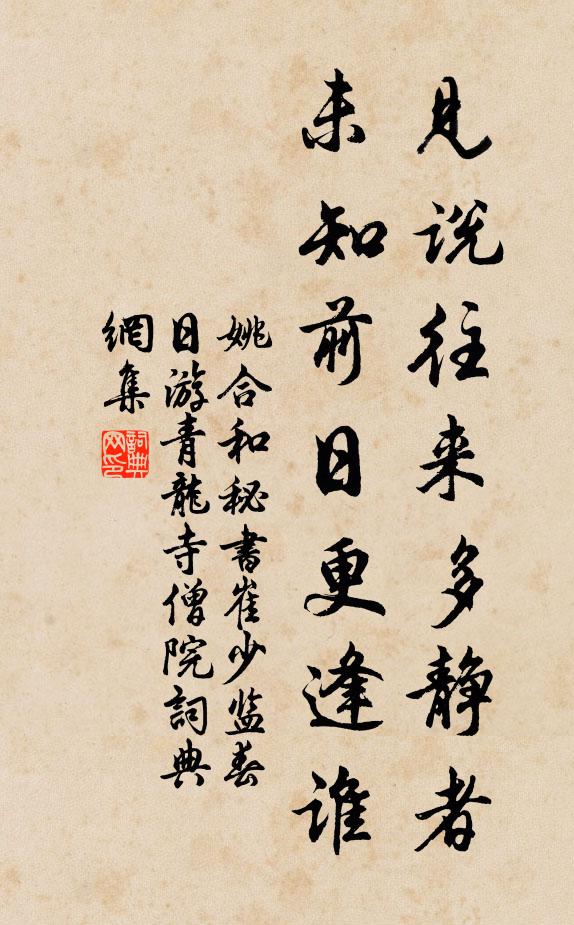 见说往来多静者
未知前日更逢谁
姚合和秘書崔少监春
日游青龍寺僧院詞典
網集
詞典网印